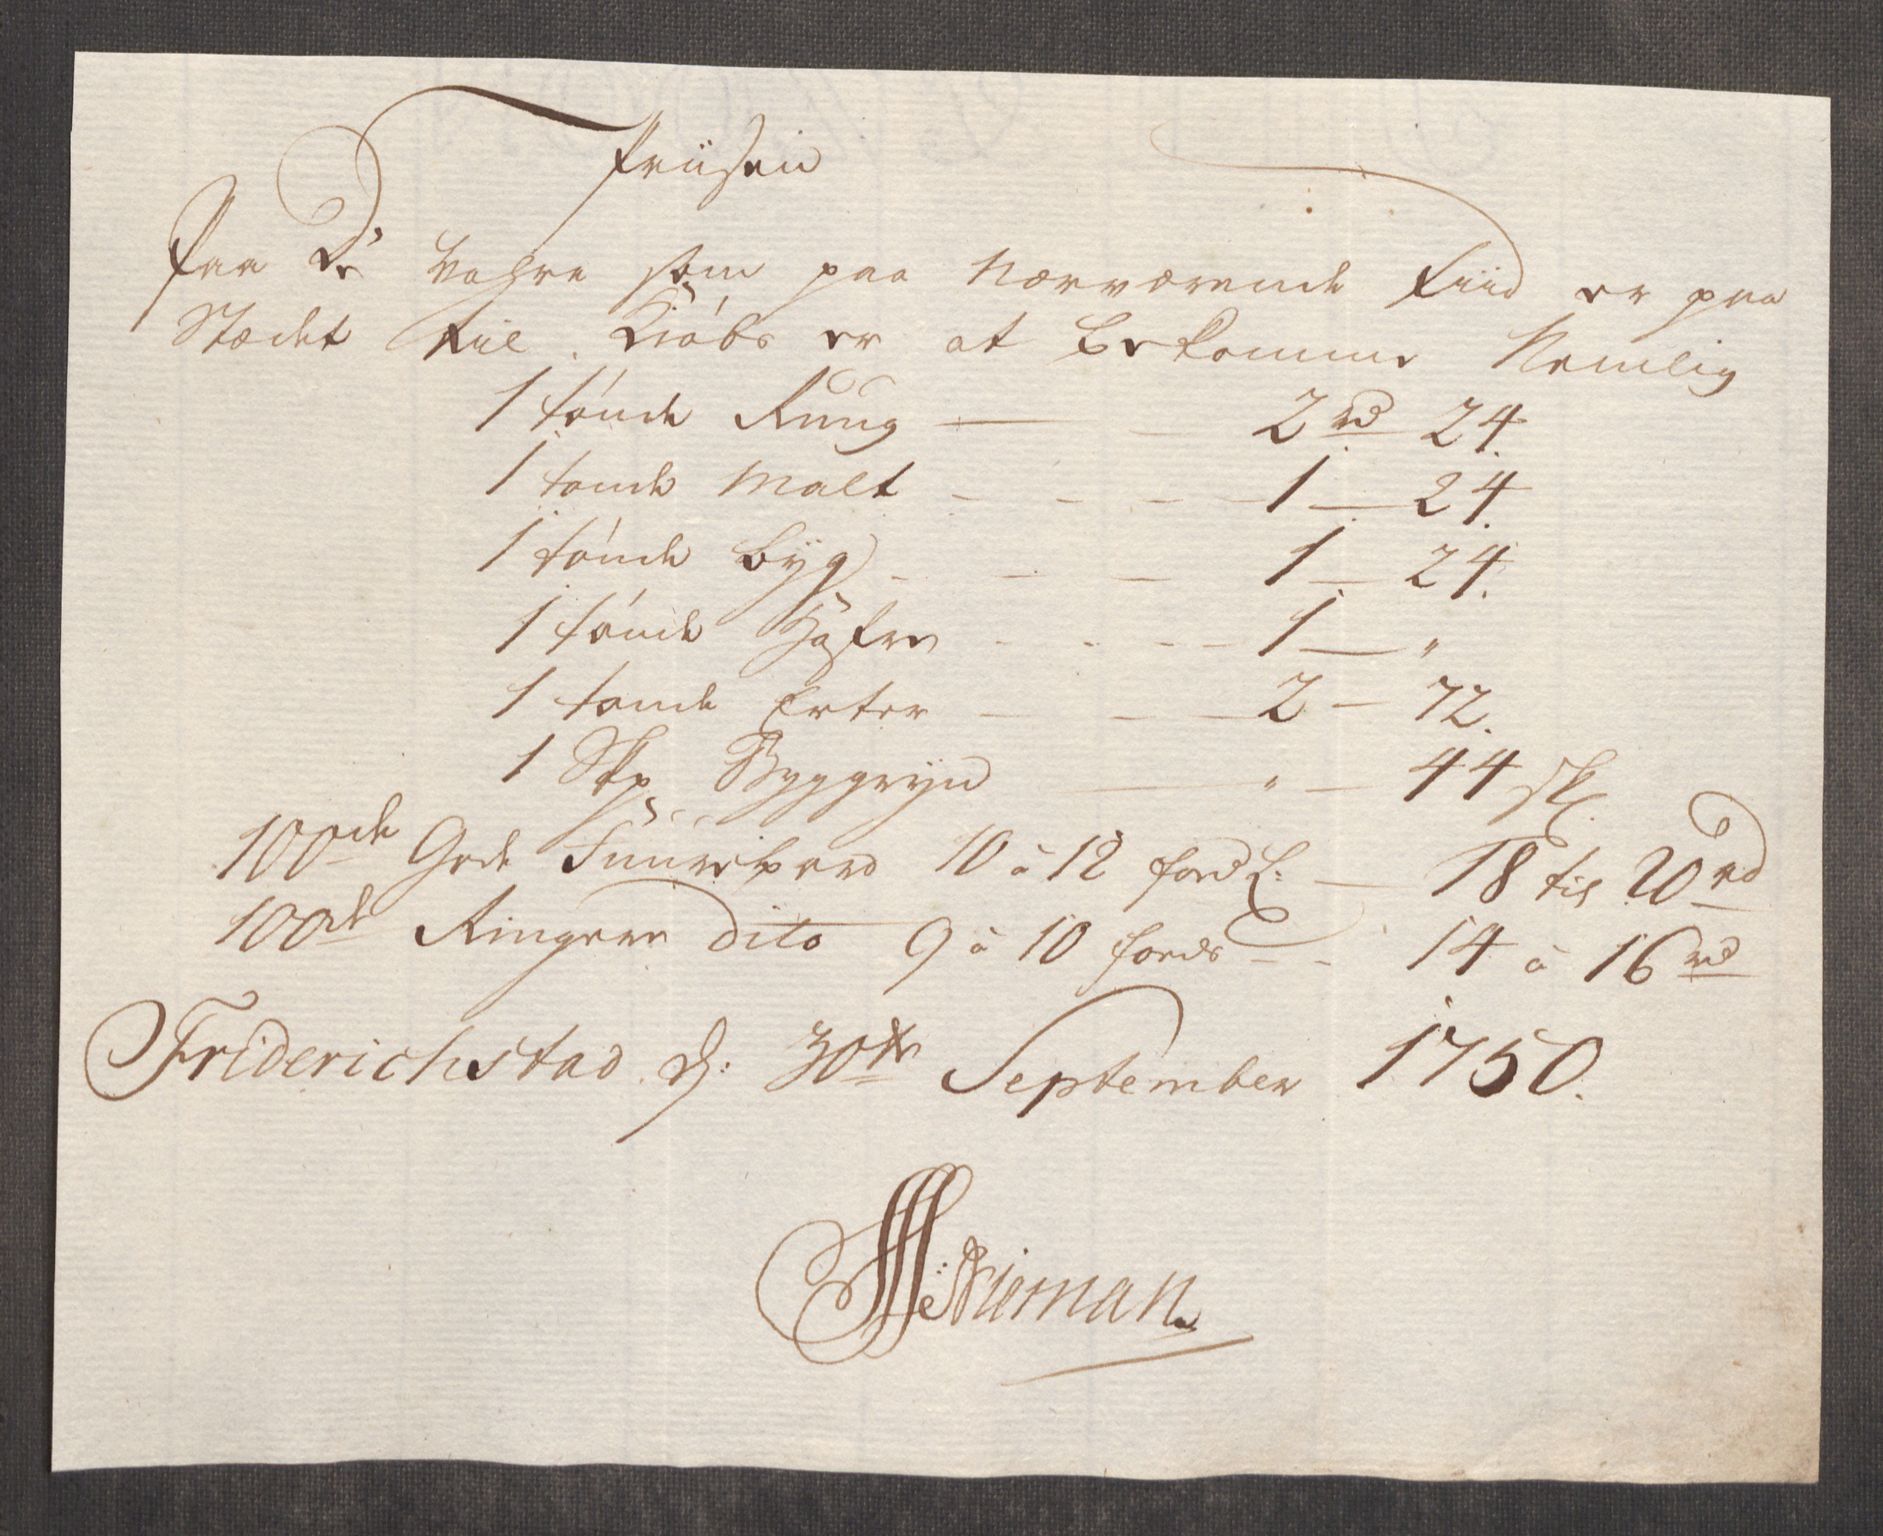 Priisen
Paa De Vahre som paa Nærværende Tiid er paa
Stædet till Kiøbs er at bekomme Nemlig
1 tønde Rúug — 2 rd 24.
1 tønde Malt - - - 1 — 24.
1 tønde Byg - - - 1 — 24.
1 tønde Hafre - - - 1 — "
1 tønde Erter - - - 2 — 72.
1 Skp Byggryn — " — 44 sk
100de Gode Fúúrebord 10 à 12 fods L: — 18 til 20 rd
100de Ringere Dito 9 à 10 fods - - 14 à 16 rd
Friderichstad d: 30te September 1750.
Nieman